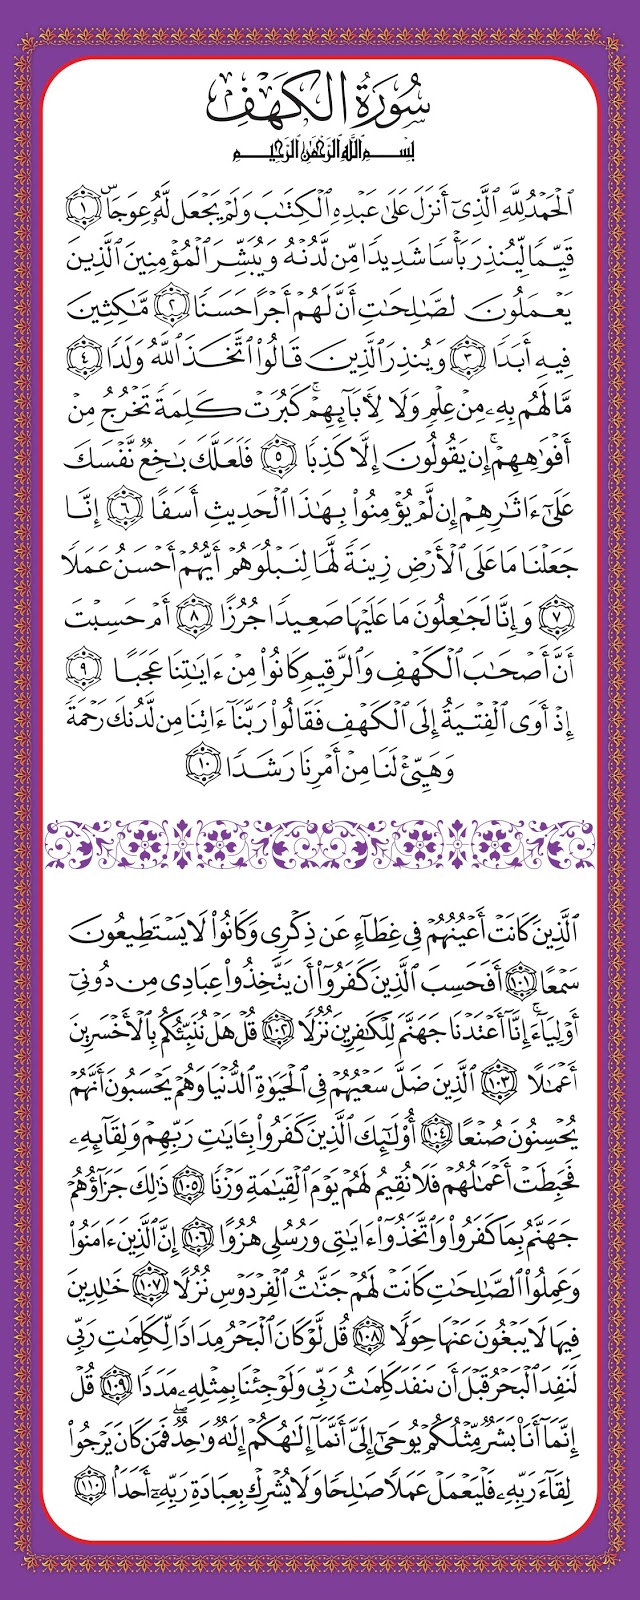 سُورَةُ الْكَهْفِ
بِسْمِ اللَّهِ الرَّحْمَٰنِ الرَّحِيمِ
ٱلْحَمْدُ لِلَّهِ ٱلَّذِىٓ أَنزَلَ عَلَىٰ عَبْدِهِ ٱلْكِتَٰبَ وَلَمْ يَجْعَل لَّهُۥ عِوَجَاۜ ١
قَيِّمًا لِّيُنذِرَ بَأْسًا شَدِيدًا مِّن لَّدُنْهُ وَيُبَشِّرَ ٱلْمُؤْمِنِينَ ٱلَّذِينَ
يَعْمَلُونَ لصَّٰلِحَٰتِ أَنَّ لَهُمْ أَجْرًا حَسَنًا ٢ مَّٰكِثِينَ
فِيهِ أَبَدًا ٣ وَيُنذِرَ ٱلَّذِينَ قَالُوا۟ ٱتَّخَذَ ٱللَّهُ وَلَدًا ٤
مَّا لَهُم بِهِۦ مِنْ عِلْمٍ وَلَا لِأَبَآئِهِمْ ۚ كَبُرَتْ كَلِمَةً تَخْرُجُ مِنْ
أَفْوَٰهِهِمْ ۚ إِن يَقُولُونَ إِلَّا كَذِبًا ٥ فَلَعَلَّكَ بَٰخِعٌ نَّفْسَكَ
عَلَىٰٓ ءَاثَٰرِهِمْ إِن لَّمْ يُؤْمِنُوا۟ بِهَٰذَا ٱلْحَدِيثِ أَسَفًا ٦ إِنَّا
جَعَلْنَا مَا عَلَى ٱلْأَرْضِ زِينَةً لَّهَا لِنَبْلُوَهُمْ أَيُّهُمْ أَحْسَنُ عَمَلًا
٧ وَإِنَّا لَجَٰعِلُونَ مَا عَلَيْهَا صَعِيدًا جُرُزًا ٨ أَمْ حَسِبْتَ
أَنَّ أَصْحَٰبَ ٱلْكَهْفِ وَٱلرَّقِيمِ كَانُوا۟ مِنْ ءَايَٰتِنَا عَجَبًا ٩
إِذْ أَوَى ٱلْفِتْيَةُ إِلَى ٱلْكَهْفِ فَقَالُوا۟ رَبَّنَآ ءَاتِنَا مِن لَّدُنكَ رَحْمَةً
وَهَيِّئْ لَنَا مِنْ أَمْرِنَا رَشَدًا ١٠
ٱلَّذِينَ كَانَتْ أَعْيُنُهُمْ فِى غِطَآءٍ عَن ذِكْرِى وَكَانُوا۟ لَا يَسْتَطِيعُونَ
سَمْعًا ١٠١ أَفَحَسِبَ ٱلَّذِينَ كَفَرُوٓا۟ أَن يَتَّخِذُوا۟ عِبَادِى مِن دُونِىٓ
أَوْلِيَآءَ ۚ إِنَّآ أَعْتَدْنَا جَهَنَّمَ لِلْكَٰفِرِينَ نُزُلًا ١٠٢ قُلْ هَلْ نُنَبِّئُكُم بِٱلْأَخْسَرِينَ
أَعْمَٰلًا ١٠٣ ٱلَّذِينَ ضَلَّ سَعْيُهُمْ فِى ٱلْحَيَوٰةِ ٱلدُّنْيَا وَهُمْ يَحْسَبُونَ أَنَّهُمْ
يُحْسِنُونَ صُنْعًا ١٠٤ أُو۟لَٰٓئِكَ ٱلَّذِينَ كَفَرُوا۟ بِـَٔايَٰتِ رَبِّهِمْ وَلِقَآئِهِۦ
فَحَبِطَتْ أَعْمَٰلُهُمْ فَلَا نُقِيمُ لَهُمْ يَوْمَ ٱلْقِيَٰمَةِ وَزْنًا ١٠٥ ذَٰلِكَ جَزَآؤُهُمْ
جَهَنَّمُ بِمَا كَفَرُوا۟ وَٱتَّخَذُوٓا۟ ءَايَٰتِى وَرُسُلِى هُزُوًا ١٠٦ إِنَّ ٱلَّذِينَ ءَامَنُوا۟
وَعَمِلُوا۟ ٱلصَّٰلِحَٰتِ كَانَتْ لَهُمْ جَنَّٰتُ ٱلْفِرْدَوْسِ نُزُلًا ١٠٧ خَٰلِدِينَ
فِيهَا لَا يَبْغُونَ عَنْهَا حِوَلًا ١٠٨ قُل لَّوْ كَانَ ٱلْبَحْرُ مِدَادًا لِّكَلِمَٰتِ رَبِّى
لَنَفِدَ ٱلْبَحْرُ قَبْلَ أَن تَنفَدَ كَلِمَٰتُ رَبِّى وَلَوْ جِئْنَا بِمِثْلِهِۦ مَدَدًا ١٠٩ قُلْ
إِنَّمَآ أَنَا۠ بَشَرٌ مِّثْلُكُمْ يُوحَىٰٓ إِلَىَّ أَنَّمَآ إِلَٰهُكُمْ إِلَٰهٌ وَٰحِدٌ ۖ فَمَن كَانَ يَرْجُوا۟
لِقَآءَ رَبِّهِۦ فَلْيَعْمَلْ عَمَلًا صَٰلِحًا وَلَا يُشْرِكْ بِعِبَادَةِ رَبِّهِۦٓ أَحَدًۢا ١١٠